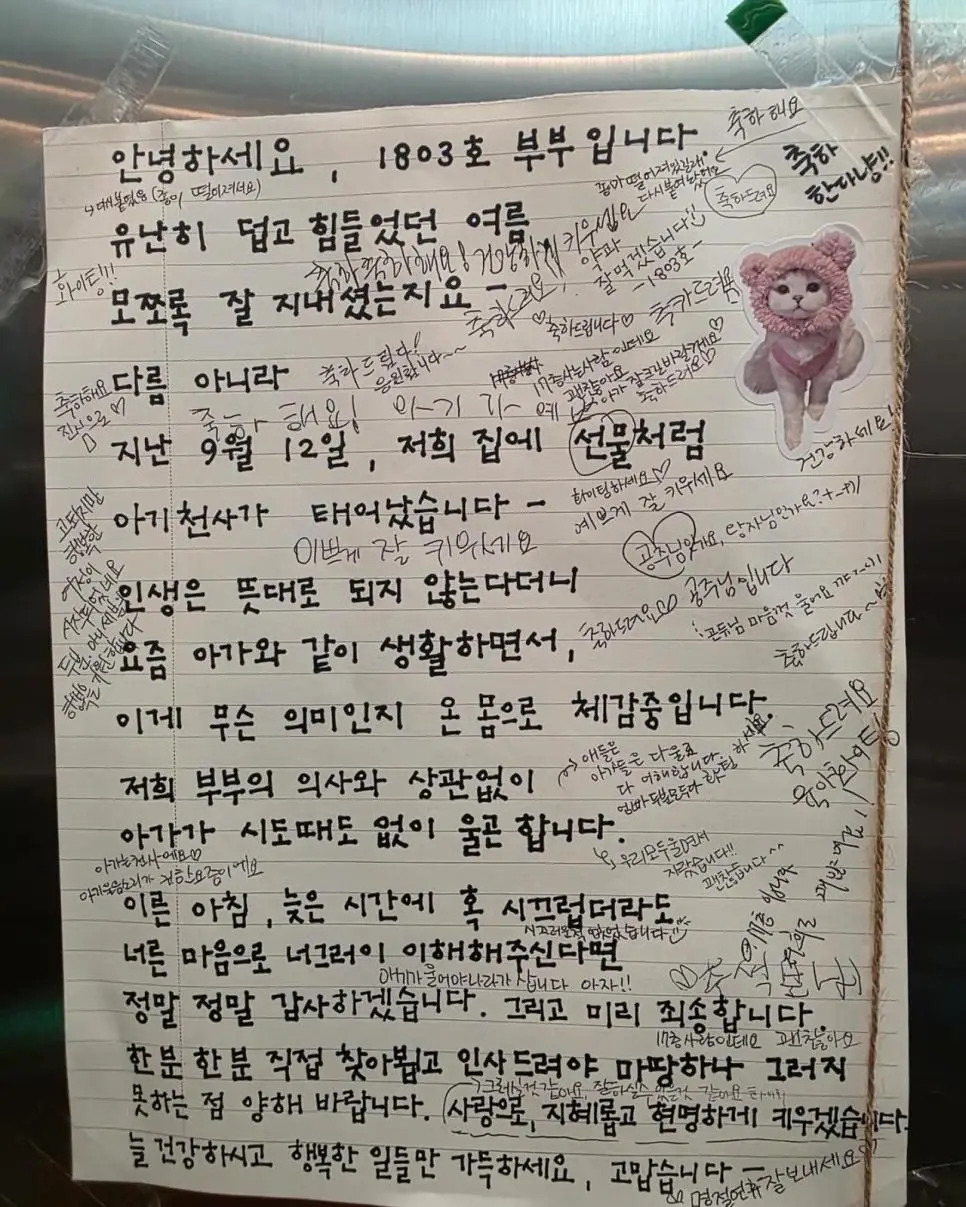 축하 해요
안녕하세요, 1803호 부부입니다.
축하
한다냥!!
종이 떨어져있길래
다시붙여놨어요
축하드려요
유난히 덥고 힘들었던 여름
화이팅!!
축하 축하해요! 건강하게 키우세요
약과
잘 먹겠습니다
-1803호-
모쪼록 잘 지내셨는지요 -
축하드려요,
♡축하드립니다♡
축하드립니다!
응원합니다~~
다름 아니라
17층사는사람인데요
괜찮아요
아가 잘크길바랄게요♡
축하드려요♡
축하해요
진심으로♡
축하 해요! 아기가
지난 9월 12일, 저희 집에 선물처럼
건강하세요!
화이팅하세요♡
예쁘게 잘 키우세요
아기천사가 태어났습니다 -
이쁘게 잘 키우세요
공주님인가요, 왕자님인가요?
고되지만
행복한
여정이
시작되었네요
인생은 뜻대로 되지 않는다더니
축하드려요♡♡
공주님입니다
공듀님 마음껏 울어요
축하드립니다~
요즘 아가와 같이 생활하면서,
이게 무슨 의미인지 온 몸으로 체감중입니다.
축하드려요
육아화이팅!
애들은
아가들은 다울죠
다 이해합니다.
저희 부부의 의사와 상관없이
아가가 시도때도 없이 울곤 합니다.
아가는천사에요♡
우리모두울면서
자랐습니다!!
괜찮습니다^^
이른 아침, 늦은 시간에 혹 시끄럽더라도
시끄러운적 없었습니다
너른 마음으로 너그러이 이해해주신다면
아기가울어야나라가 삽니다 아자!!
정말 정말 감사하겠습니다. 그리고 미리 죄송합니다
17층사람인데요 괜찮아요
한분 한분 직접 찾아뵙고 인사드려야 마땅하나 그러지
못하는 점 양해 바랍니다. 사랑으로, 지혜롭고 현명하게 키우겠습니다.
늘 건강하시고 행복한 일들만 가득하세요, 고맙습니다 -
명절연휴 잘보내세요